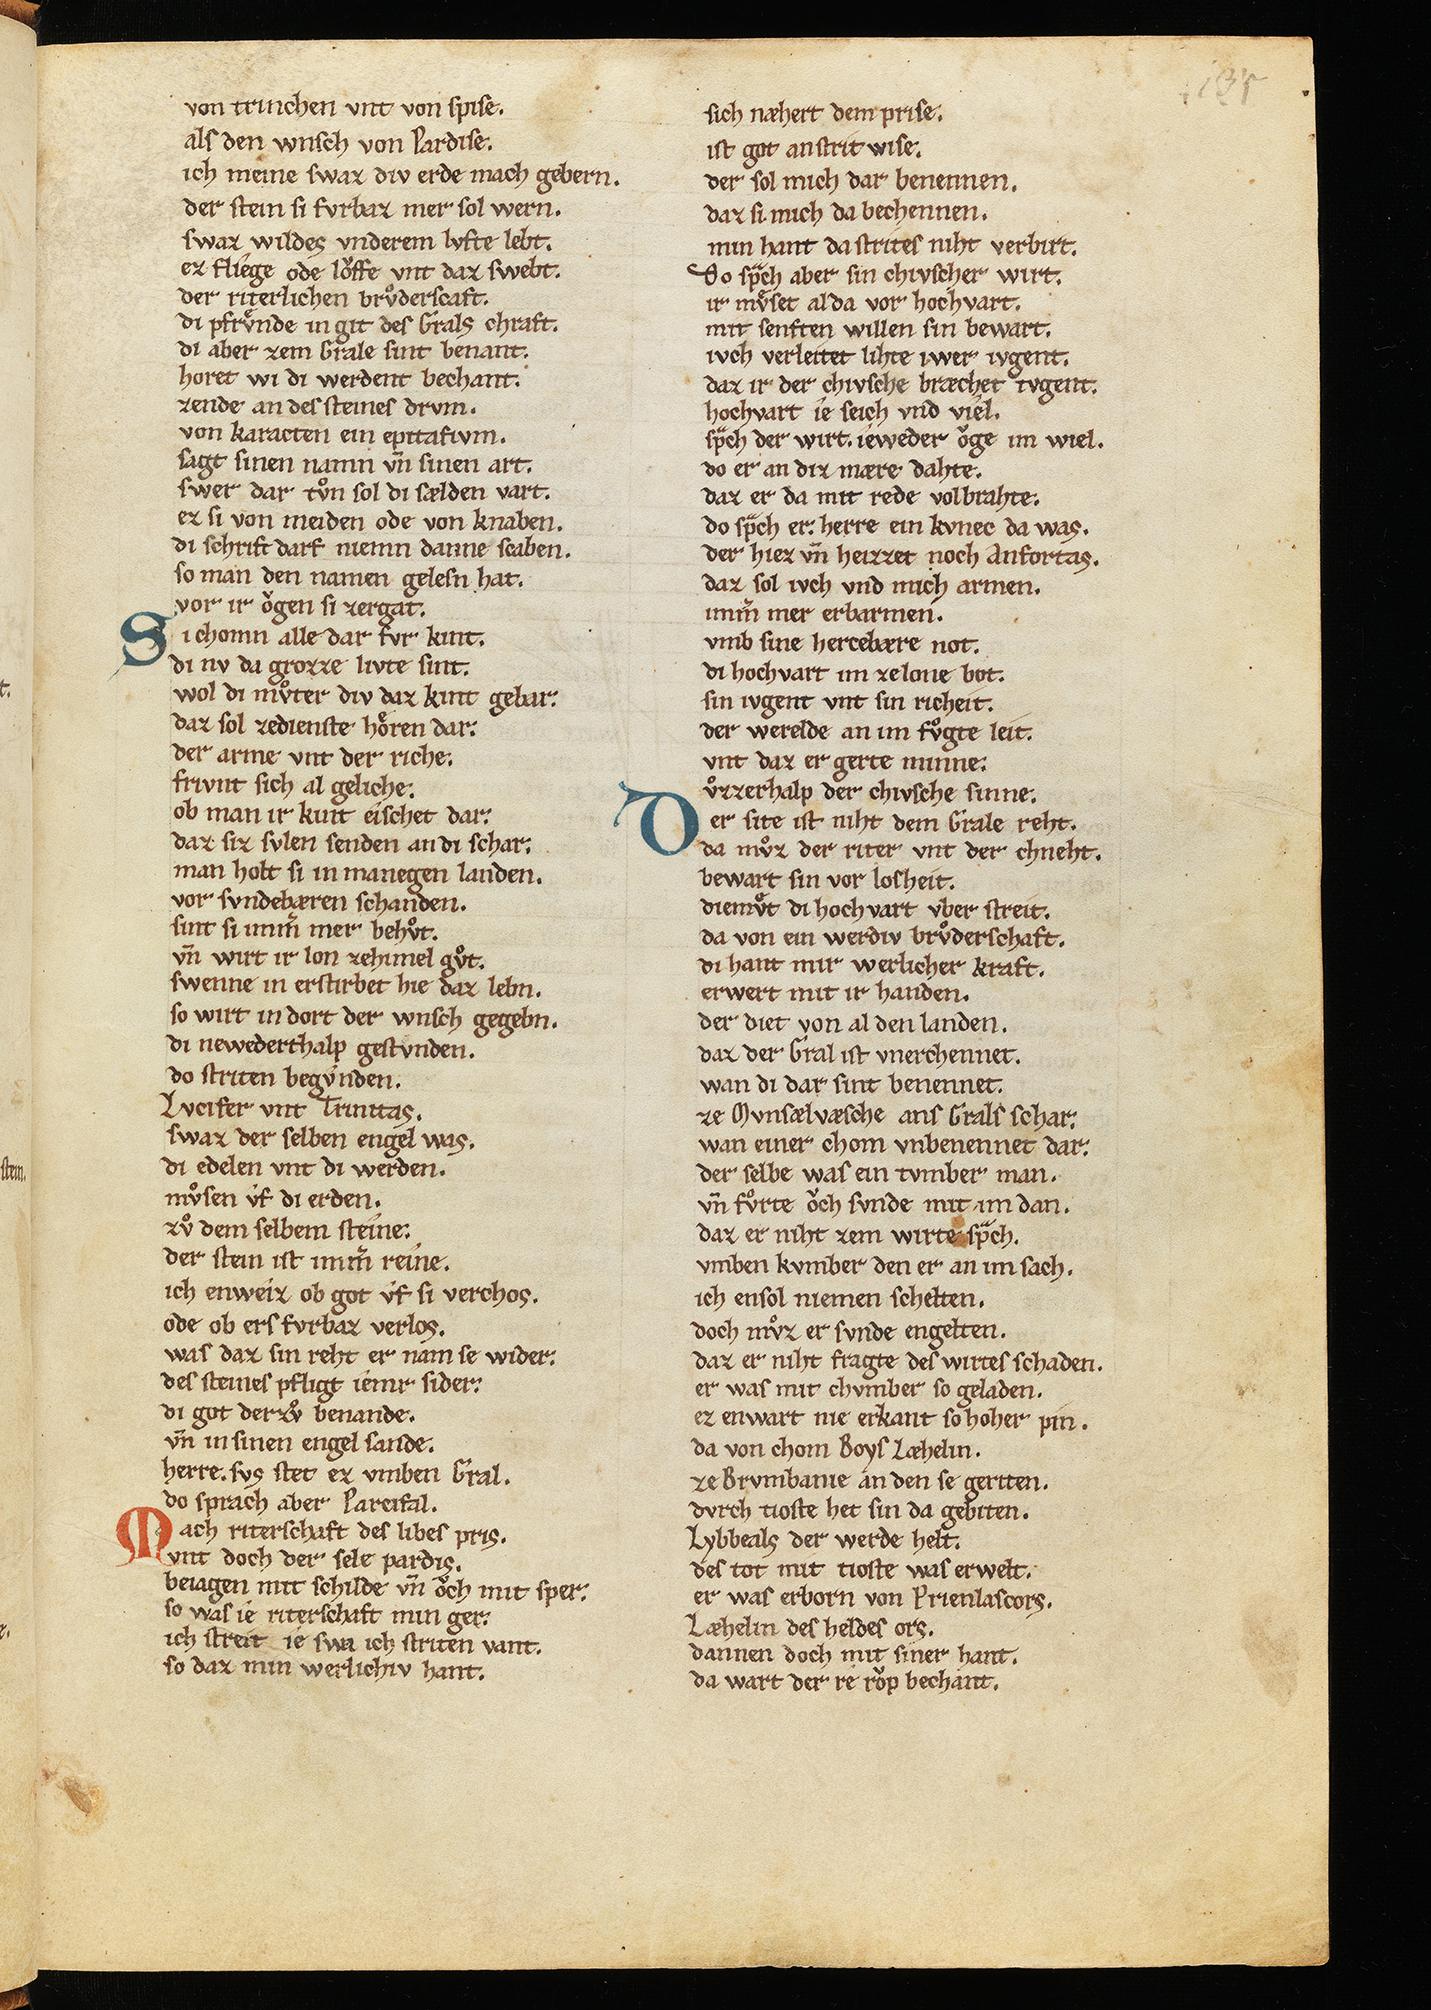 von trinchen vnt von spise.
als den wnsch von Pardise.
ich meine swaz div erde mach gebern.
der stein si fvrbaz mer sol wern.
swaz wildes vnderem lvfte lebt.
ez fliege ode loͮffe vnt daz swebt.
der riterlichen brvͦderscaft.
di pfrvͤnde in git des Grals chraft.
di aber zem Grale sint benant.
horet wi di werdent bechant.
zende an des steines drvm.
von karacten ein epitafivm.
sagt sinen namn vn̄ sinen art.
swer dar tvͦn sol di sælden vart.
ez si von meiden ode von knaben.
di schrift darf niemn danne scaben.
so man den namen gelesn hat.
vor ir oͮgen si zergat.
Si chomn alle dar fvr kint.
di nv da grozze livte sint.
wol di mvͦter div daz kint gebar.
daz sol zedienste hoͤren dar.
der arme vnt der riche.
frivnt sich al geliche.
ob man ir kint eischet dar.
daz siz svlen senden an di schar.
man holt si in manegen landen.
vor svndebæren schanden.
sint si imm̄ mer behvͦt.
vn̄ wirt ir lon zehimel gvͦt.
swenne in erstirbet hie daz lebn.
so wirt in dort der wnsch gegebn.
di newederthalp gestvnden.
do striten begvnden.
Lvcifer vnt Trinitas.
swaz der selben engel was.
di edelen vnt di werden.
mvͦsen vf di erden.
zvͦ dem selbem steine.
der stein ist imm̄ reine.
ich enweiz ob got vf si verchos.
ode ob ers fvrbaz verlos.
was daz sin reht er nam se wider.
des steines pfligt iemr sider.
di got derzvͦ benande.
vn̄ in sinen engel sande.
herre. svs stet ez vmben Gral.
do sprach aber Parcifal.
Mach riterschaft des libes pris.
vnt doch der sele pardis.
beiagen mit schilde vn̄ oͮch mit sper.
so was ie riterschaft min ger.
ich streit ie swa ich striten vant.
so daz min werlichiv hant.
sich næhert dem prise.
ist got anstrit wise.
der sol mich dar benennen.
daz si mich da bechennen.
min hant da strites niht verbirt.
Do spᷓch aber sin chivscher wirt.
ir mvͤset alda vor hochvart.
mit senften willen sin bewart.
ivch verleitet lihte iwer ivgent.
daz ir der chivsche bræchet tvgent.
hochvart ie seich vnd viel.
spᷓch der wirt. ieweder oͮge im wiel.
do er an diz mære dahte.
daz er da mit rede volbrahte.
do spᷓch er. herre ein kvnec da was.
der hiez vn̄ heizzet noch Anfortas.
daz sol ivch vnd mich armen.
imm̄ mer erbarmen.
vmb sine hercebære not.
di hochvart im zelone bot.
sin ivgent vnt sin richeit.
der werelde an im fvͦgte leit.
vnt daz er gerte minne.
vͦzzerhalp der chivsche sinne.
Der site ist niht dem Grale reht.
da mvͦz der riter vnt der chneht.
bewart sin vor losheit.
diemvͤt di hochvart vber streit.
da von ein werdiv brvͦderschaft.
di hant mir werlicher kraft.
erwert mit ir handen.
der diet von al den landen.
daz der Gral ist vnerchennet.
wan di dar sint benennet.
ze Mvnsælvæsche ans Grals schar.
wan einer chom vnbenennet dar.
der selbe was ein tvmber man.
vn̄ fvͦrte oͮch svnde mit im dan.
daz er niht zem wirte spᷓch.
vmben kvmber den er an im sach.
ich ensol niemen schelten.
doch mvͦz er svnde engelten.
daz er niht fragte des wirtes schaden.
er was mit chvmber so geladen.
ez enwart nie erkant so hoher pin.
da von chom Roys Læhelin.
ze Brvmbanie an den se geriten.
dvrch tioste het sin da gebiten.
Lybbeals der werde helt.
des tot mit tioste was erwelt.
er was erborn von Prienlascors.
Læhelin des heldes ors.
dannen doch mit siner hant.
da wart der re roͮp bechant.